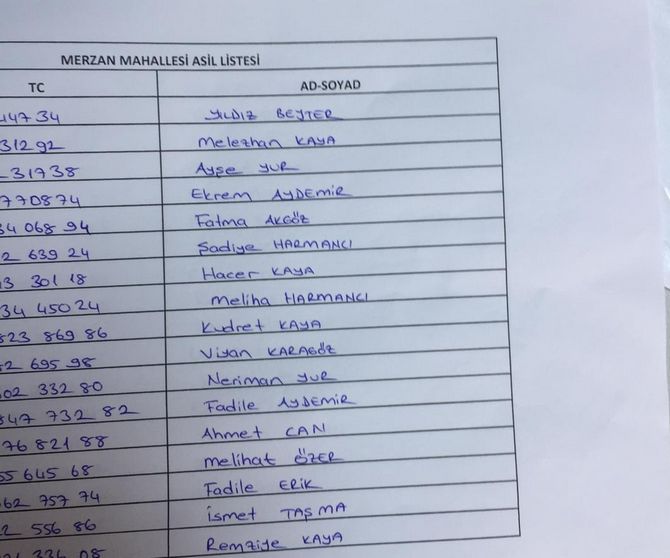 MERZAN MAHALLESİ ASİL LİSTESİ
TC AD-SOYAD
447 34 YILDIZ BEYTER
31292 Melezhan KAYA
31738 Ayşe YUR
770874 Ekrem AYDEMİR
34 068 94 Fatma AKGÖZ
2 639 24 Şadiye HARMANCI
13 301 18 Hacer KAYA
34 450 24 Meliha HARMANCI
823 869 86 Kudret KAYA
82 695 98 Viyan KARAGÖZ
602 332 80 Neriman YUR
847 732 82 Fadile AYDEMİR
76 821 88 Ahmet CAN
55 645 68 Melihat ÖZER
662 757 74 Fadile ERİK
2 556 86 İsmet TAŞMA
Remziye KAYA